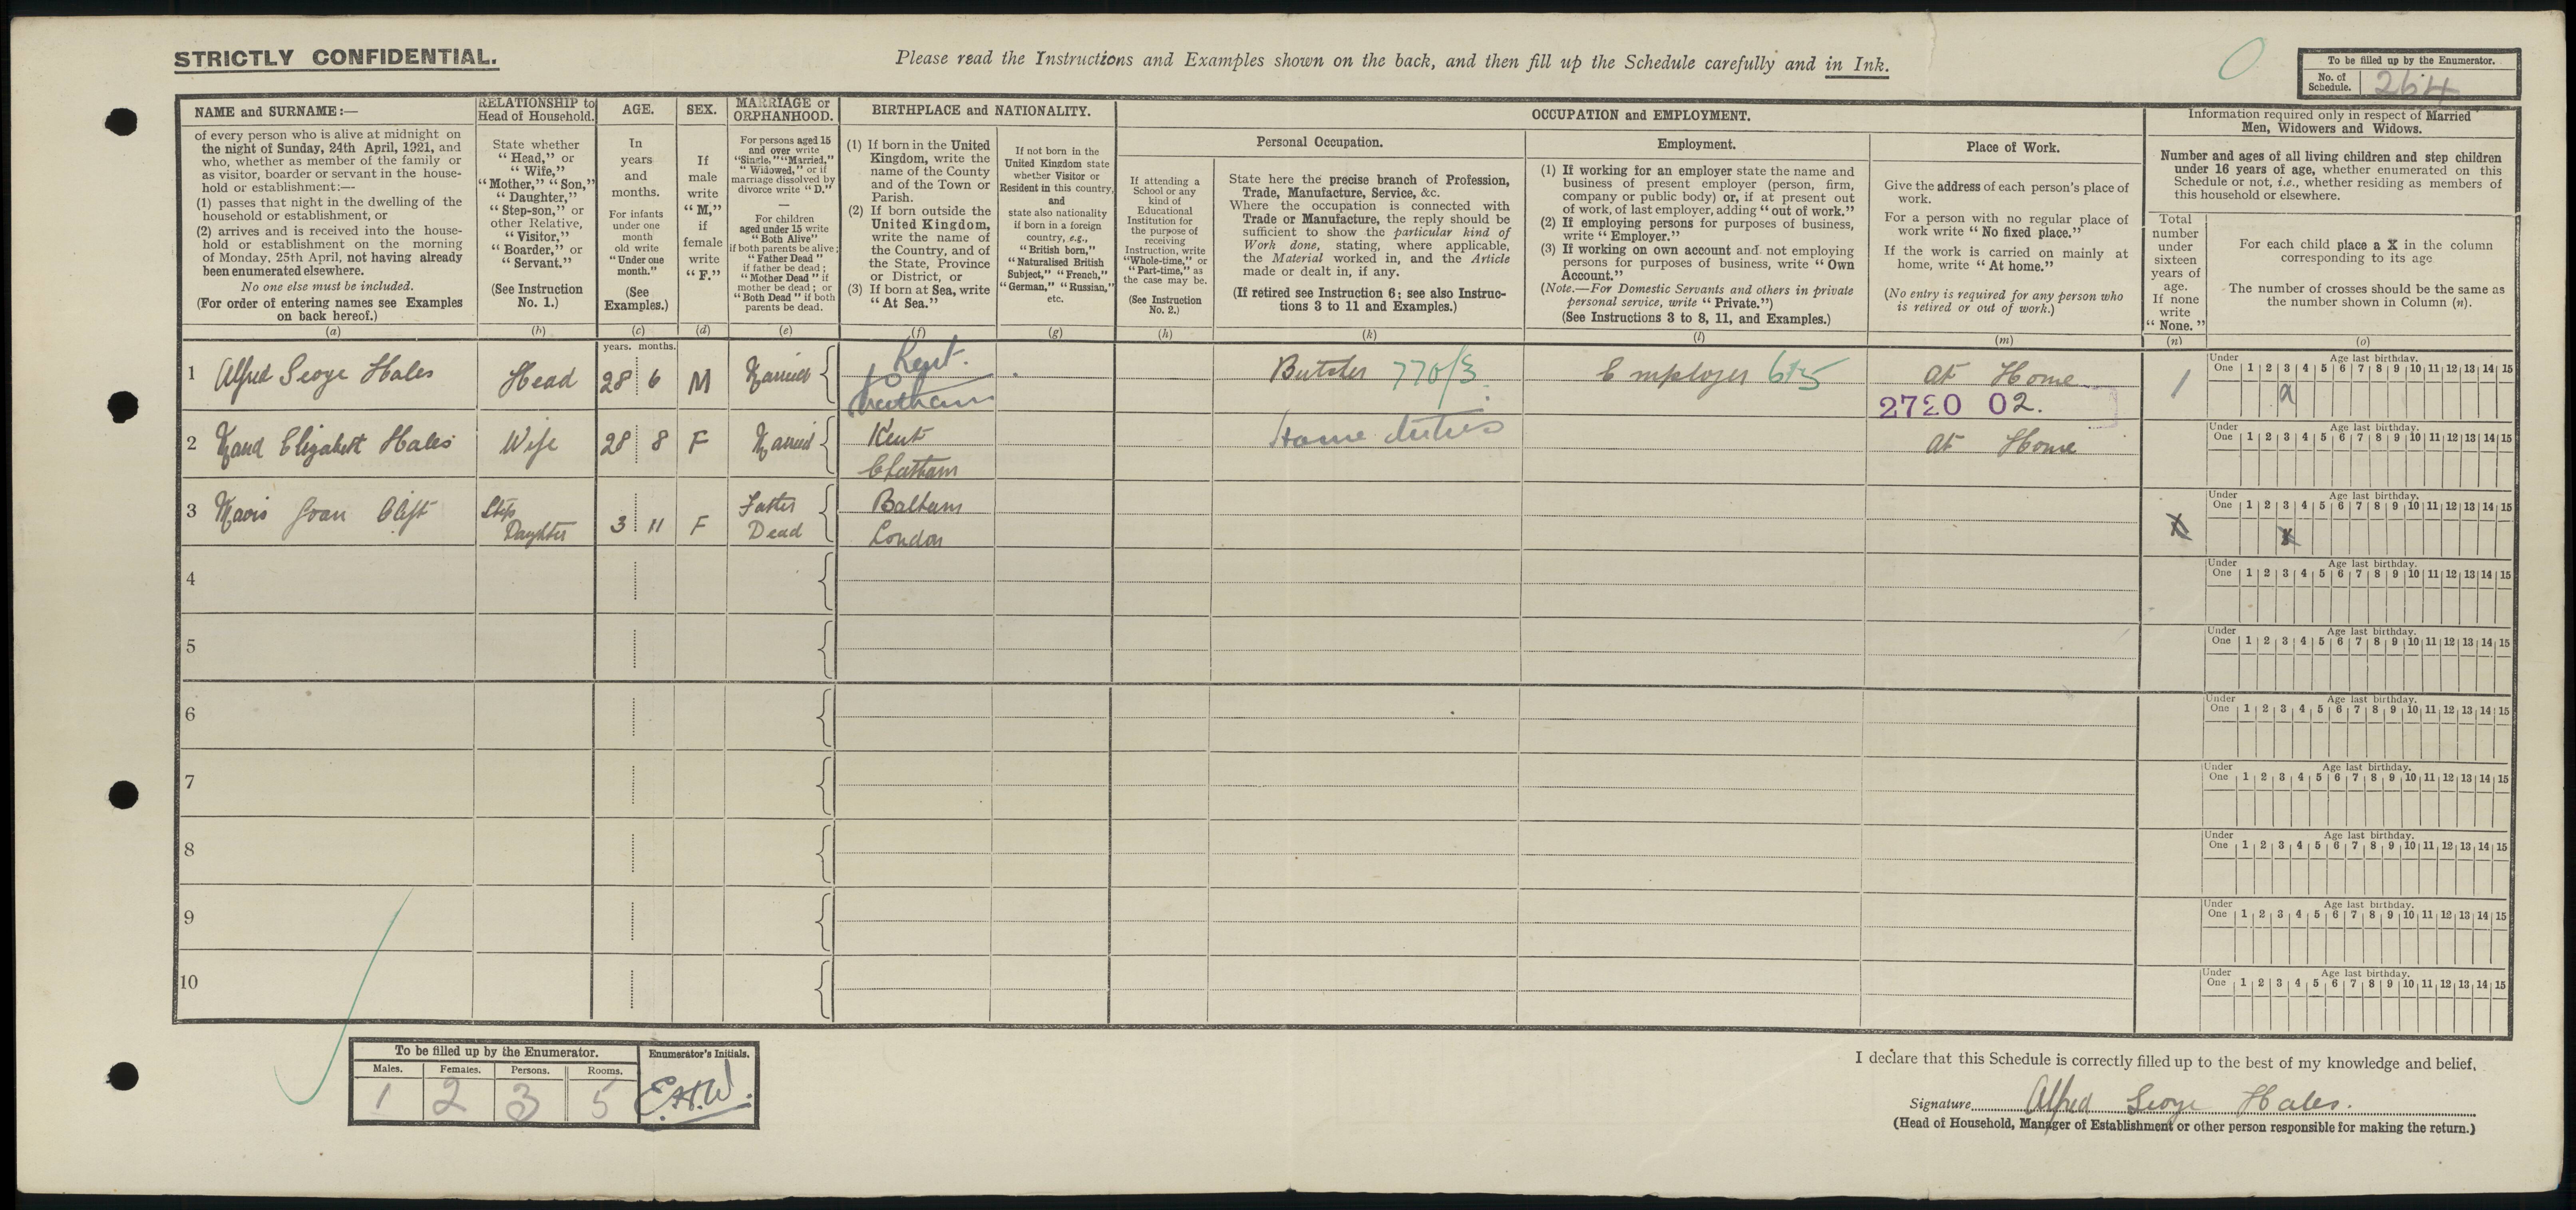 STRICTLY CONFIDENTIAL.
Please read the Instructions and Examples shown on the back, and then fill up the Schedule carefully and in Ink.
To be filled up by the Enumerator.
No. of Schedule. 264
NAME and SURNAME:—
of every person who is alive at midnight on
the night of Sunday, 24th April, 1921, and
who, whether as member of the family or
as visitor, boarder or servant in the house-
hold or establishment:—
(1) passes that night in the dwelling of the
household or establishment, or
(2) arrives and is received into the house-
hold or establishment on the morning
of Monday, 25th April, not having already
been enumerated elsewhere.
No one else must be included.
(For order of entering names see Examples
on back hereof.)
(a)
RELATIONSHIP to
Head of Household.
State whether
"Head," or
"Wife,"
"Mother," "Son,"
"Daughter,"
"Step-son," or
other Relative,
"Visitor,"
"Boarder," or
"Servant."
(See Instruction
No. 1.)
(b)
AGE.
In
years
and
months.
For infants
under one
month
old write
"Under one
month."
(See
Examples.)
(c)
SEX.
If
male
write
"M,"
if
female
write
"F."
(d)
MARRIAGE or
ORPHANHOOD.
For persons aged 15
and over write
"Single," "Married,"
"Widowed," or if
marriage dissolved by
divorce write "D."
—
For children
aged under 15 write
"Both Alive"
if both parents be alive;
"Father Dead"
if father be dead;
"Mother Dead" if
mother be dead; or
"Both Dead" if both
parents be dead.
(e)
BIRTHPLACE and NATIONALITY.
(1) If born in the United
Kingdom, write the
name of the County
and of the Town or
Parish.
(2) If born outside the
United Kingdom,
write the name of
the Country, and of
the State, Province
or District, or
(3) If born at Sea, write
"At Sea."
(f)
If not born in the
United Kingdom state
whether Visitor or
Resident in this country,
and
state also nationality
if born in a foreign
country, e.g.,
"British born,"
"Naturalised British
Subject," "French,"
"German," "Russian,"
etc.
(g)
OCCUPATION and EMPLOYMENT.
Personal Occupation.
If attending a
School or any
kind of
Educational
Institution for
the purpose of
receiving
Instruction, write
"Whole-time," or
"Part-time," as
the case may be.
(See Instruction
No. 2.)
(h)
State here the precise branch of Profession,
Trade, Manufacture, Service, &c.
Where the occupation is connected with
Trade or Manufacture, the reply should be
sufficient to show the particular kind of
Work done, stating, where applicable,
the Material worked in, and the Article
made or dealt in, if any.
(If retired see Instruction 6; see also Instruc-
tions 3 to 11 and Examples.)
(k)
Employment.
(1) If working for an employer state the name and
business of present employer (person, firm,
company or public body) or, if at present out
of work, of last employer, adding "out of work."
(2) If employing persons for purposes of business,
write "Employer."
(3) If working on own account and not employing
persons for purposes of business, write "Own
Account."
(Note.—For Domestic Servants and others in private
personal service, write "Private.")
(See Instructions 3 to 8, 11, and Examples.)
(l)
Place of Work.
Give the address of each person's place of
work.
For a person with no regular place of
work write "No fixed place."
If the work is carried on mainly at
home, write "At home."
(No entry is required for any person who
is retired or out of work.)
(m)
Information required only in respect of Married
Men, Widowers and Widows.
Number and ages of all living children and step children
under 16 years of age, whether enumerated on this
Schedule or not, i.e., whether residing as members of
this household or elsewhere.
Total
number
under
sixteen
years of
age.
If none
write
"None."
(n)
For each child place a X in the column
corresponding to its age
The number of crosses should be the same as
the number shown in Column (n).
(o)
years. months.
1 Alfred George Hales Head 28 6 M Married Kent. Chatham Butcher 770/3 Employer 6 At Home 1
2720 02.
Under One 1 2 3 4 5 6 7 8 9 10 11 12 13 14 15
Age last birthday.
2 Maud Elizabeth Hales Wife 28 8 F Married Kent Chatham Home duties At Home
Under One 1 2 3 4 5 6 7 8 9 10 11 12 13 14 15
Age last birthday.
3 Mavis Joan Clift Step Daughter 3 11 F Father Dead Balham London X
Under One 1 2 3 4 5 6 7 8 9 10 11 12 13 14 15
Age last birthday.
X
4
Under One 1 2 3 4 5 6 7 8 9 10 11 12 13 14 15
Age last birthday.
5
Under One 1 2 3 4 5 6 7 8 9 10 11 12 13 14 15
Age last birthday.
6
Under One 1 2 3 4 5 6 7 8 9 10 11 12 13 14 15
Age last birthday.
7
Under One 1 2 3 4 5 6 7 8 9 10 11 12 13 14 15
Age last birthday.
8
Under One 1 2 3 4 5 6 7 8 9 10 11 12 13 14 15
Age last birthday.
9
Under One 1 2 3 4 5 6 7 8 9 10 11 12 13 14 15
Age last birthday.
10
Under One 1 2 3 4 5 6 7 8 9 10 11 12 13 14 15
Age last birthday.
To be filled up by the Enumerator.
Males. Females. Persons. Rooms.
1 2 3 5
Enumerator's Initials.
E.H.W.
I declare that this Schedule is correctly filled up to the best of my knowledge and belief.
Signature Alfred George Hales.
(Head of Household, Manager of Establishment or other person responsible for making the return.)